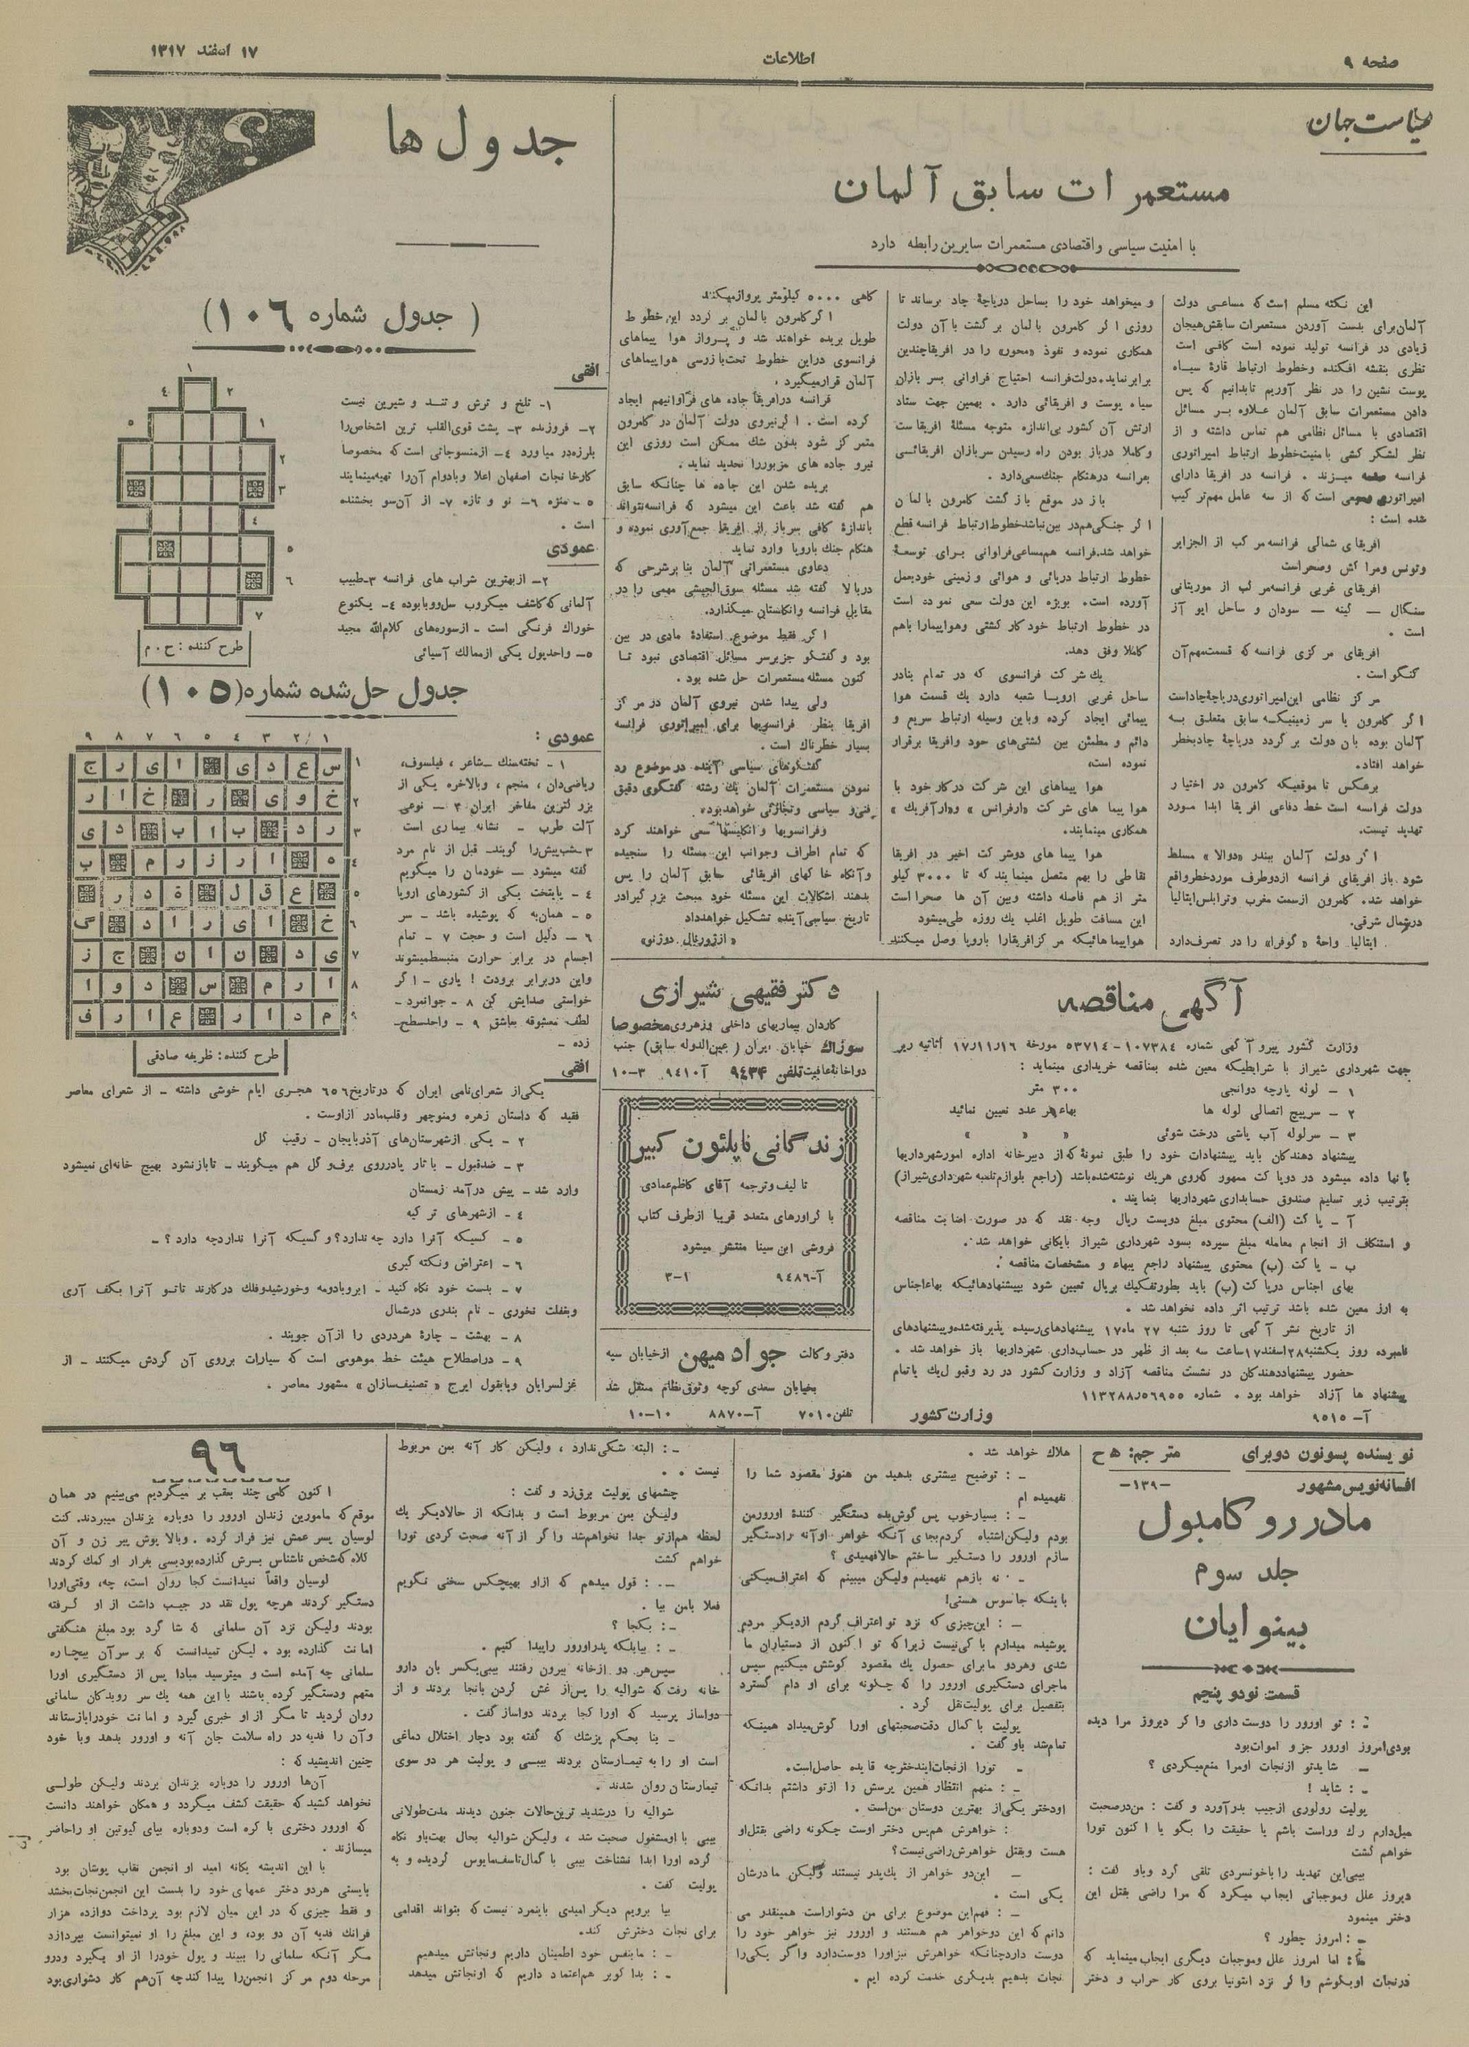 صفحه ۹
اطلاعات
۱۷ اسفند ۱۳۱۷
سیاست جهان
مستعمرات سابق آلمان
با امنیت سیاسی و اقتصادی مستعمرات سایرین رابطه دارد
این نکته مسلم است که مساعی دولت
آلمان برای بدست آوردن مستعمرات سابقش هیجان
زیادی در فرانسه تولید نموده است کافی است
نظری بنقشه افکنده و خطوط ارتباط قارهٔ سیاه
پوست نشین را در نظر آوریم تا بدانیم که پس
دادن مستعمرات سابق آلمان علاوه بر مسائل
اقتصادی با مسائل نظامی هم تماس داشته و از
نظر لشکر کشی با امنیت خطوط ارتباط امپراتوری
فرانسه میزند . فرانسه در افریقا دارای
امپراتوری است که از سه عامل مهم ترکیب
شده است :
افریقای شمالی فرانسه مرکب از الجزایر
وتونس ومراکش وصحراست
افریقای غربی فرانسه مرکب از موریتانی
سنگال — گینه — سودان و ساحل ایو آر
است .
افریقای مرکزی فرانسه که قسمت مهم آن
کنگو است .
مرکز نظامی این امپراتوری دریاچهٔ چاد است
اگر کامرون یا سر زمینیکه سابق متعلق به
آلمان بوده بان دولت بر گردد دریاچهٔ چاد بخطر
خواهد افتاد.
برعکس تا موقعیکه کامرون در اختیار
دولت فرانسه است خط دفاعی افریقا ابدا مورد
تهدید نیست.
اگر دولت آلمان ببندر «دوالا» مسلط
شود باز افریقای فرانسه از دو طرف مورد خطر واقع
خواهد شد. کامرون از سمت مغرب وترابلس ایتالیا
در شمال شرقی.
ایتالیا واحهٔ «گوفرا» را در تصرف دارد
و میخواهد خود را بساحل دریاچهٔ چاد برساند تا
روزی اگر کامرون بالمان بر گشت با آن دولت
همکاری نموده و نفوذ «محور» را در افریقا چندین
برابر نماید. دولت فرانسه احتیاج فراوانی بسر بازان
سیاه پوست و افریقائی دارد . بهمین جهت ستاد
ارتش آن کشور بی اندازه متوجه مسئلهٔ افریقاست
و کاملا در باز بودن راه رسیدن سربازان افریقائی
بفرانسه در هنگام جنک سعی دارد.
باز در موقع باز گشت کامرون بالمان
اگر جنگی هم در بین نباشد خطوط ارتباط فرانسه قطع
خواهد شد. فرانسه هم مساعی فراوانی برای توسعهٔ
خطوط ارتباط دریائی و هوائی و زمینی خود بعمل
آورده است. بویژه این دولت سعی نموده است
در خطوط ارتباط خود کار کشتی وهواپیما را باهم
کاملا وفق دهد.
یك شرکت فرانسوی که در تمام بنادر
ساحل غربی اروپا شعبه دارد یك قسمت هوا
پیمائی ایجاد کرده و باین وسیله ارتباط سریع و
دائم و مطمئن بین کشتی های خود وافریقا برقرار
نموده است،
هوا پیماهای این شرکت در کار خود با
هوا پیما های شرکت «ارفرانس» و«ارآفریک»
همکاری مینمایند.
هوا پیما های دو شرکت اخیر در افریقا
نقاطی را بهم متصل مینمایند که تا ۳۰۰۰ کیلو
متر از هم فاصله داشته وبین آن ها صحرا است
این مسافت طویل اغلب یك روزه طی میشود
هواپیماهائیکه مرکز افریقا را باروپا وصل میکنند
گاهی ۵۰۰۰ کیلومتر پرواز میکنند
اگر کامرون بالمان بر گردد این خطوط
طویل بریده خواهند شد و پرواز هوا پیماهای
فرانسوی در این خطوط تحت بازرسی هواپیماهای
آلمان قرار میگیرد .
فرانسه در افریقا جاده های فراوانیهم ایجاد
کرده است . اگر نیروی دولت آلمان در کامرون
متمرکز شود بدون شك ممکن است روزی این
نیرو جاده های مزبور را تحدید نماید .
بریده شدن این جاده ها چنانکه سابق
هم گفته شد باعث این میشود که فرانسه نتواند
باندازهٔ کافی سرباز از افریقا جمع آوری نموده و
هنگام جنك باروپا وارد نماید
دعاوی مستعمراتی آلمان بنا بر شرحی که
در بالا گفته شد مسئله سوق الجیشی مهمی را در
مقابل فرانسه وانگلستان میگذارد.
اگر فقط موضوع، استفادهٔ مادی در بین
بود و گفتگو جز بر سر مسائل اقتصادی نبود تا
کنون مسئله مستعمرات حل شده بود .
ولی پیدا شدن نیروی آلمان در مرکز
افریقا بنظر فرانسویها برای امپراتوری فرانسه
بسیار خطرناك است .
گفتگوهای سیاسی آینده در موضوع رد
نمودن مستعمرات آلمان یك رشته گفتگوی دقیق
فنی و سیاسی و تجارتی خواهد بود.
وفرانسویها وانگلیسها سعی خواهند کرد
که تمام اطراف وجوانب این مسئله را سنجیده
وآنگاه خاکهای افریقائی سابق آلمان را پس
بدهند اشکالات این مسئله خود مبحث بزرگی را در
تاریخ سیاسی آینده تشکیل خواهد داد
«از ژورنال دوژنو»
جدول ها
( جدول شماره ۱۰۶ )
افقی
۱- تلخ و ترش و تند و شیرین نیست
۲- فروزنده ۳- پشت قوی القلب ترین اشخاص را
بلرزه در میاورد ۴- از منسوجاتی است که مخصوصا
کارخانجات اصفهان اعلا وبا دوام آن را تهیه مینمایند
۵- منزه ۶- نو و تازه ۷- از آن سو بخشنده
است .
عمودی
۲- از بهترین شراب های فرانسه ۳- طبیب
آلمانی که کاشف میکروب سل و وبا بوده ۴- یکنوع
خوراك فرنگی است - از سوره های کلام الله مجید
۵- واحد پول یکی از ممالك آسیائی
۱
۴ ۲
۵ ۱
۲
۳
۴
۵
۶
۷
طرح کننده : ح ۰ م
جدول حل شده شماره (۱۰۵)
۱ ۲ ۳ ۴ ۵ ۶ ۷ ۸ ۹
۱ س ع د ی ا ی ر ج
۲ خ و ی ر خ ا ر
۳ ر د ب ا ب د ی
۴ ه ا ر ز ر م پ
۵ ع ق ل ة د ر
۶ خ ا ی ر ا د گ
۷ ی د ن ا ن ج ز
۸ ا ر م س د و ا
۹ م د ا ر ع ا ر ف
طرح کننده: ظریفه صادقی
عمودی :
۱ - تخته سنگ - شاعر ، فیلسوف،
ریاضی دان ، منجم ، وبالاخره یکی از
بزرگترین مفاخر ایران ۲ - نوعی
آلت طرب - نشانه بیماری است
۳- شب پیش را گویند- قبل از نام مرد
گفته میشود - خودمان را میگویم
۴ - پایتخت یکی از کشورهای اروپا
۵ - همان به که پوشیده باشد - سر
۶ - دلیل است و حجت ۷ - تمام
اجسام در برابر حرارت منبسط میشوند
واین در برابر برودت ! یاری - اگر
خواستی صدایش کن ۸ - جوانمرد -
لطف معشوقه بعاشق ۹ - واحد سطح -
زده -
افقی
یکی از شعرای نامی ایران که در تاریخ ۶۵۶ هجری ایام خوشی داشته - از شعرای معاصر
فقید که داستان زهره ومنوچهر وقلب مادر از اوست .
۲ - یکی از شهرستان های آذربایجان - رقیب گل
۳ - ضد قبول - با تار یا در روی برف و گل هم میکوبند - تا باز نشود بهیچ خانه ای نمیشود
وارد شد - پیش درآمد زمستان
۴ - از شهرهای ترکیه
۵ - کسیکه آنرا دارد چه ندارد؟ و کسیکه آنرا ندارد چه دارد ؟ -
۶ - اعتراض ونکته گیری
۷ - بدست خود نگاه کنید - ابر و باد ومه وخورشید و فلك در کارند تا تو آنرا بکف آری
وبغفلت نخوری - نام بندری در شمال
۸ - بهشت - چارهٔ هر دردی را از آن جویند .
۹ - در اصطلاح هیئت خط موهومی است که سیارات بر روی آن گردش میکنند - از
غزلسرایان وبا بقول ایرج «تصنیف سازان» مشهور معاصر .
دکتر فقیهی شیرازی
کاردان بیماریهای داخلی و زهروی مخصوصا
سوزاك خیابان ایران ( عین الدوله سابق) جنب
دواخانهٔ عافیت تلفن ۹۴۳۴ آ-۹۴۱۰ ۳-۱۰
زندگانی ناپلئون کبیر
تالیف وترجمه آقای کاظم عمادی
با گراورهای متعدد قریبا از طرف کتاب
فروشی ابن سینا منتشر میشود
آ-۹۴۸۶ ۱-۳
دفتر وکالت جواد میهن از خیابان سپه
بخیابان سعدی کوچه وثوق نظام منتقل شد
تلفن ۷۰۱۰ آ-۸۸۷۰ ۱۰-۱۰
آگهی مناقصه
وزارت کشور پیرو آگهی شماره ۱۰۷۳۸۴-۵۳۷۱۴ مورخه ۱۷ر۱۱ر۱۶ اثاثیه زیر
جهت شهرداری شیراز با شرایطیکه معین شده بمناقصه خریداری مینماید :
۱ - لوله پارچه دوانجی ۳۰۰ متر
۲ - سرپیچ اتصالی لوله ها بهاء هر عدد تعیین نمائید
۳ - سرلوله آب پاشی درخت شوئی » » »
پیشنهاد دهندگان باید پیشنهادات خود را طبق نمونهٔ که از دبیرخانه اداره امور شهرداریها
بآنها داده میشود در دو پاکت ممهور که روی هر یك نوشته شده باشد (راجع بلوازم تلمبه شهرداری شیراز)
بترتیب زیر تسلیم صندوق حسابداری شهرداریها بنمایند .
آ - پاکت (الف) محتوی مبلغ دویست ریال وجه نقد که در صورت اصابت مناقصه
و استنکاف از انجام معامله مبلغ سپرده بسود شهرداری شیراز بایگانی خواهد شد .
ب - پاکت (ب) محتوی پیشنهاد راجع ببهاء و مشخصات مناقصه .
بهای اجناس در پاکت (ب) باید بطور تفکیك بریال تعیین شود بپیشنهادهائیکه بهاء اجناس
به ارز معین شده باشد ترتیب اثر داده نخواهد شد .
از تاریخ نشر آگهی تا روز شنبه ۲۷ ماه ۱۷ پیشنهادهای رسیده پذیرفته شده و پیشنهادهای
نامبرده روز یکشنبه ۲۸ اسفند ۱۷ ساعت سه بعد از ظهر در حسابداری شهرداریها باز خواهد شد .
حضور پیشنهاد دهندگان در نشست مناقصه آزاد و وزارت کشور در رد وقبول یك یا تمام
پیشنهاد ها آزاد خواهد بود . شماره ۵۶۹۵۵ر۱۱۳۲۸۸
آ- ۹۵۱۵ وزارت کشور
نویسنده پونسون دوترای مترجم: ه ح
افسانه نویس مشهور -۱۳۹-
مادر روکامبول
جلد سوم
بینوایان
قسمت نود و پنجم
- : تو اورور را دوست داری واگر دیروز مرا دیده
بودی امروز اورور جزو اموات بود
- شاید تو از نجات او مرا منع میکردی ؟
- : شاید !
پولیت رولوری از جیب بدر آورد و گفت : من در صحبت
میل دارم رك وراست باشم یا حقیقت را بگو یا اکنون ترا
خواهم کشت
بیبی این تهدید را با خونسردی تلقی کرد وباو گفت :
دیروز علل وموجباتی ایجاب میکرد که مرا راضی بقتل این
دختر مینمود
- : امروز چطور ؟
- : اما امروز علل وموجبات دیگری ایجاب مینماید که
در نجات او بکوشم واگر نزد انتونیا بروی کار خراب و دختر
هلاك خواهد شد .
- : توضیح بیشتری بدهید من هنوز مقصود شما را
نفهمیده ام
- : بسیار خوب پس گوش بده دستگیر کنندهٔ اورور من
بودم ولیکن اشتباه کردم بجای آنکه خواهر او آنه را دستگیر
سازم اورور را دستگیر ساختم حالا فهمیدی ؟
- : نه بازهم نفهمیدم ولیکن میبینم که اعتراف میکنی
باینکه جاسوس هستی!
- : این چیزی که نزد تو اعتراف کردم از دیگر مردم
پوشیده میدارم باکی نیست زیرا که تو اکنون از دستیاران ما
شدی وهر دو ما برای حصول یك مقصود کوشش میکنیم سپس
ماجرای دستگیری اورور را که چگونه برای او دام گسترد
بتفصیل برای پولیت نقل کرد .
پولیت با کمال دقت صحبتهای اورا گوش میداد همینکه
تمام شد باو گفت .
- تورا از نجات ایندختر چه فایده حاصل است.
- : منهم انتظار همین پرسش را از تو داشتم بدانکه
اودختر یکی از بهترین دوستان من است .
: خواهرش هم پس دختر اوست چگونه راضی بقتل او
هست وبقتل خواهرش راضی نیست؟
- این دو خواهر از یك پدر نیستند ولیکن مادرشان
یکی است .
- : فهم این موضوع برای من دشوار است همینقدر می
دانم که این دو خواهر هم هستند و اورور نیز خواهر خود را
دوست دارد چنانکه خواهرش نیز اورا دوست دارد واگر یکی را
نجات بدهیم بدیگری خدمت کرده ایم .
- : البته شکی ندارد ، ولیکن کار آنه بمن مربوط
نیست . .
چشمهای پولیت برق زد و گفت :
ولیکن بمن مربوط است و بدانکه از حالا دیگر یك
لحظه هم از تو جدا نخواهم شد واگر از آنه صحبت کردی تورا
خواهم کشت
- : قول میدهم که از او بهیچکس سخنی نگویم
فعلا بامن بیا .
- : بکجا ؟
- : بیا بلکه پدر اورور را پیدا کنیم .
سپس هر دو از خانه بیرون رفتند بیبی یکسر بان دارو
خانه رفت که شوالیه را پس از غش کردن بانجا بردند و از
دواساز پرسید که اورا کجا بردند دواساز گفت .
- بنا بحکم پزشك که گفته بود دچار اختلال دماغی
است او را به تیمارستان بردند بیبی و پولیت هر دو سوی
تیمارستان روان شدند .
شوالیه را در شدید ترین حالات جنون دیدند مدت طولانی
بیبی با او مشغول صحبت شد ، ولیکن شوالیه بحال بهت باو نگاه
کرده اورا ابدا نشناخت بیبی با کمال تاسف مایوس گردیده و به
پولیت گفت .
بیا برویم دیگر امیدی باینمرد نیست که بتواند اقدامی
برای نجات دخترش کند.
- : ما بنفس خود اطمینان داریم ونجاتش میدهیم
- : بدا کوبر هم اعتماد داریم که او نجاتش میدهد
۹۶
اکنون گامی چند بعقب بر میگردیم می بینیم در همان
موقع که مامورین زندان اورور را دوباره بزندان میبردند. کنت
لوسیان پسر عمش نیز فرار کرده . وبالا پوش پیر زن و آن
کلاه که شخص ناشناس بسرش گذارده بود بفرار او کمك کردند
لوسیان واقعاً نمیدانست کجا روان است، چه، وقتی اورا
دستگیر کردند هرچه پول نقد در جیب داشت از او گرفته
بودند ولیکن نزد آن سلمانی که شاگرد بود مبلغ هنگفتی
امانت گذارده بود . لیکن نمیدانست که بر سر آن بیچاره
سلمانی چه آمده است و میترسید مبادا پس از دستگیری اورا
متهم ودستگیر کرده باشند با این همه یك سر روبدکان سلمانی
روان گردید تا مگر از او خبری گیرد و امانت خود را بازستاند
وآن را فدیه در راه سلامت جان آنه و اورور بدهد وبا خود
چنین اندیشید که :
آن ها اورور را دوباره بزندان بردند ولیکن طولی
نخواهد کشید که حقیقت کشف میگردد و همگان خواهند دانست
که اورور دختری باکره است ودوباره بپای گیوتین او را حاضر
میسازند .
با این اندیشه یگانه امید او انجمن نقاب پوشان بود
بایستی هر دو دختر عمهای خود را بدست این انجمن نجات بخشد
و فقط چیزی که در این میان لازم بود پرداخت دوازده هزار
فرانك فدیه آن دو بود، و این مبلغ را او نمیتوانست بپردازد
مگر آنکه سلمانی را ببیند و پول خود را از او بگیرد ودرو
مرحله دوم مرکز انجمن را پیدا کند چه آن هم کار دشواری بود